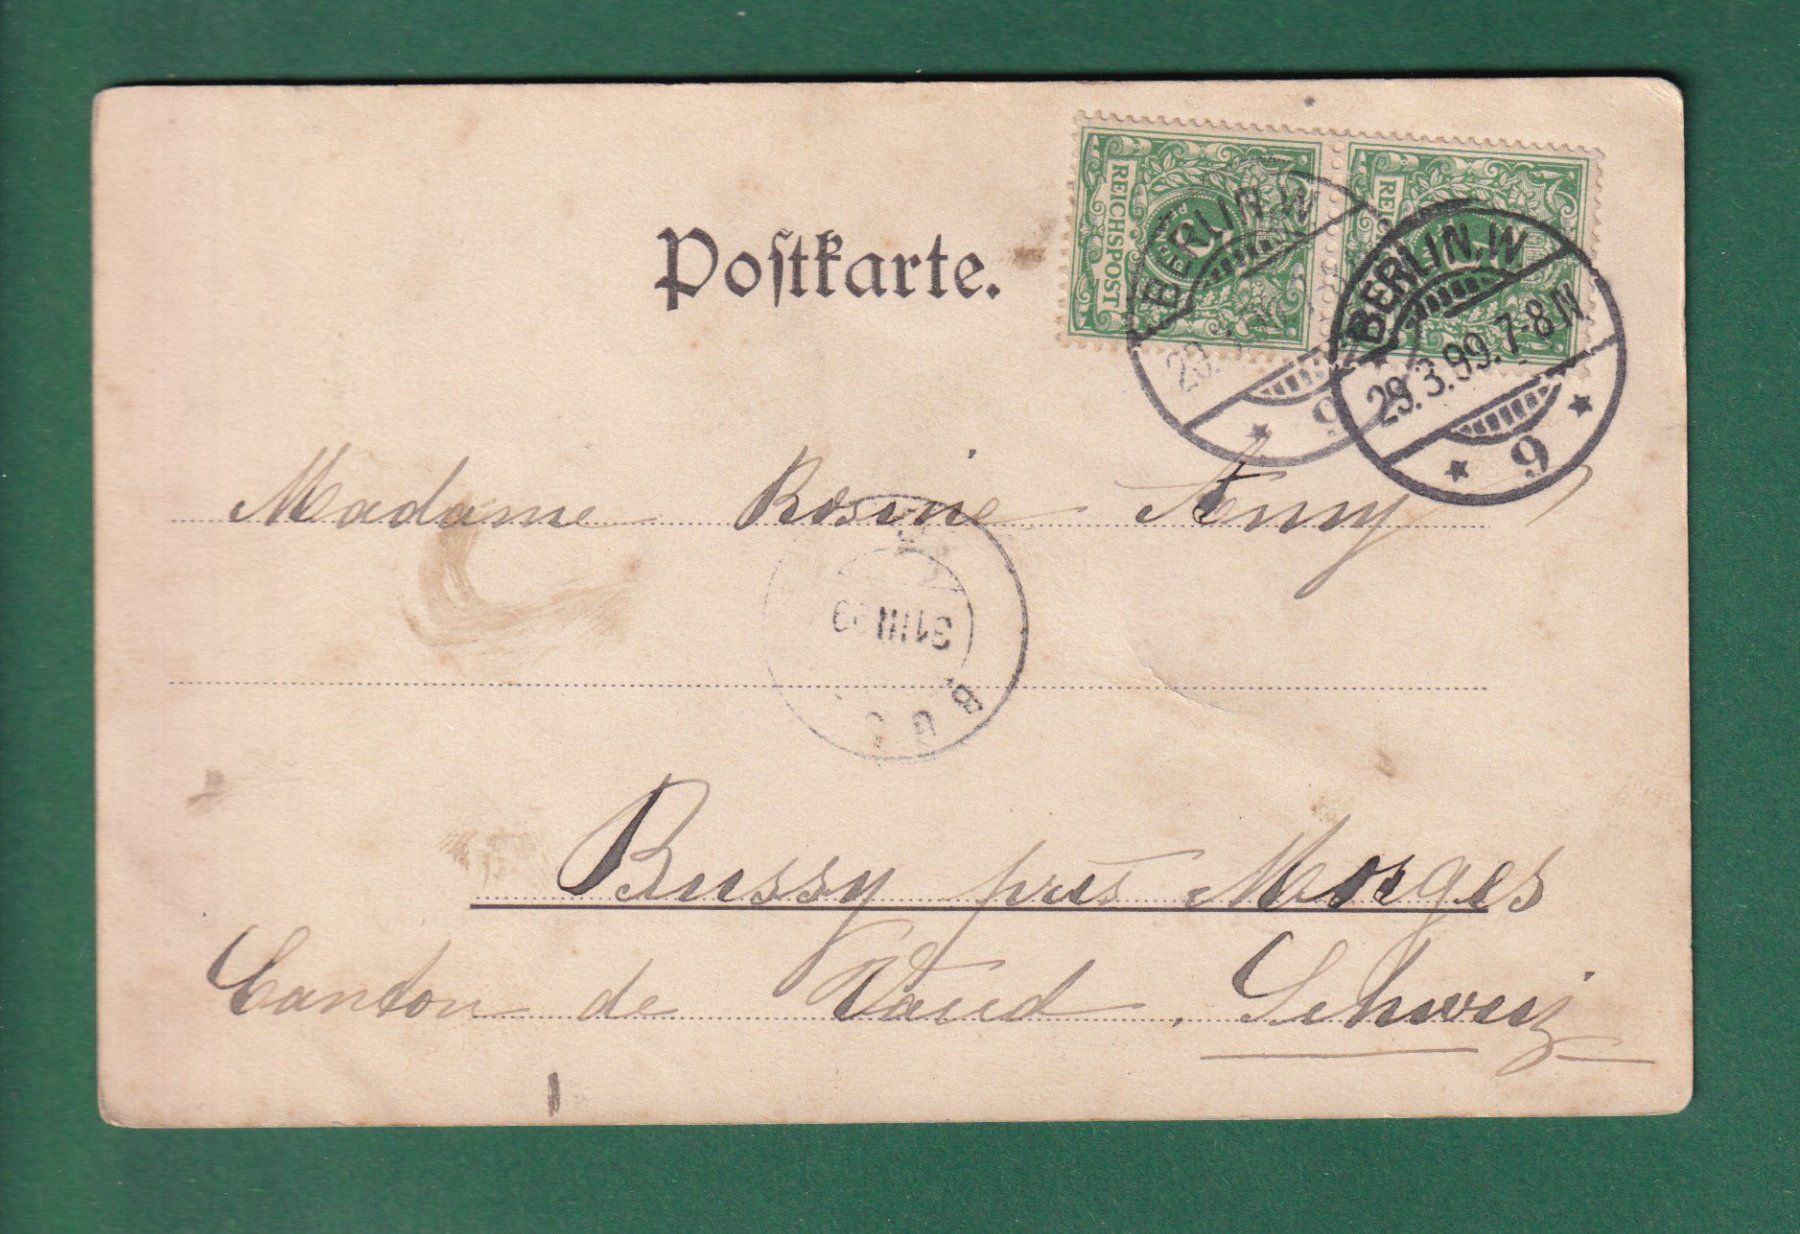 Postkarte.
REICHSPOST
BERLIN. W
9
BERLIN. W
29.3.99. 7-8 N
9
Madame Rosine
31 III 99
Bussy près Morges
Canton de Vaud. Schweiz